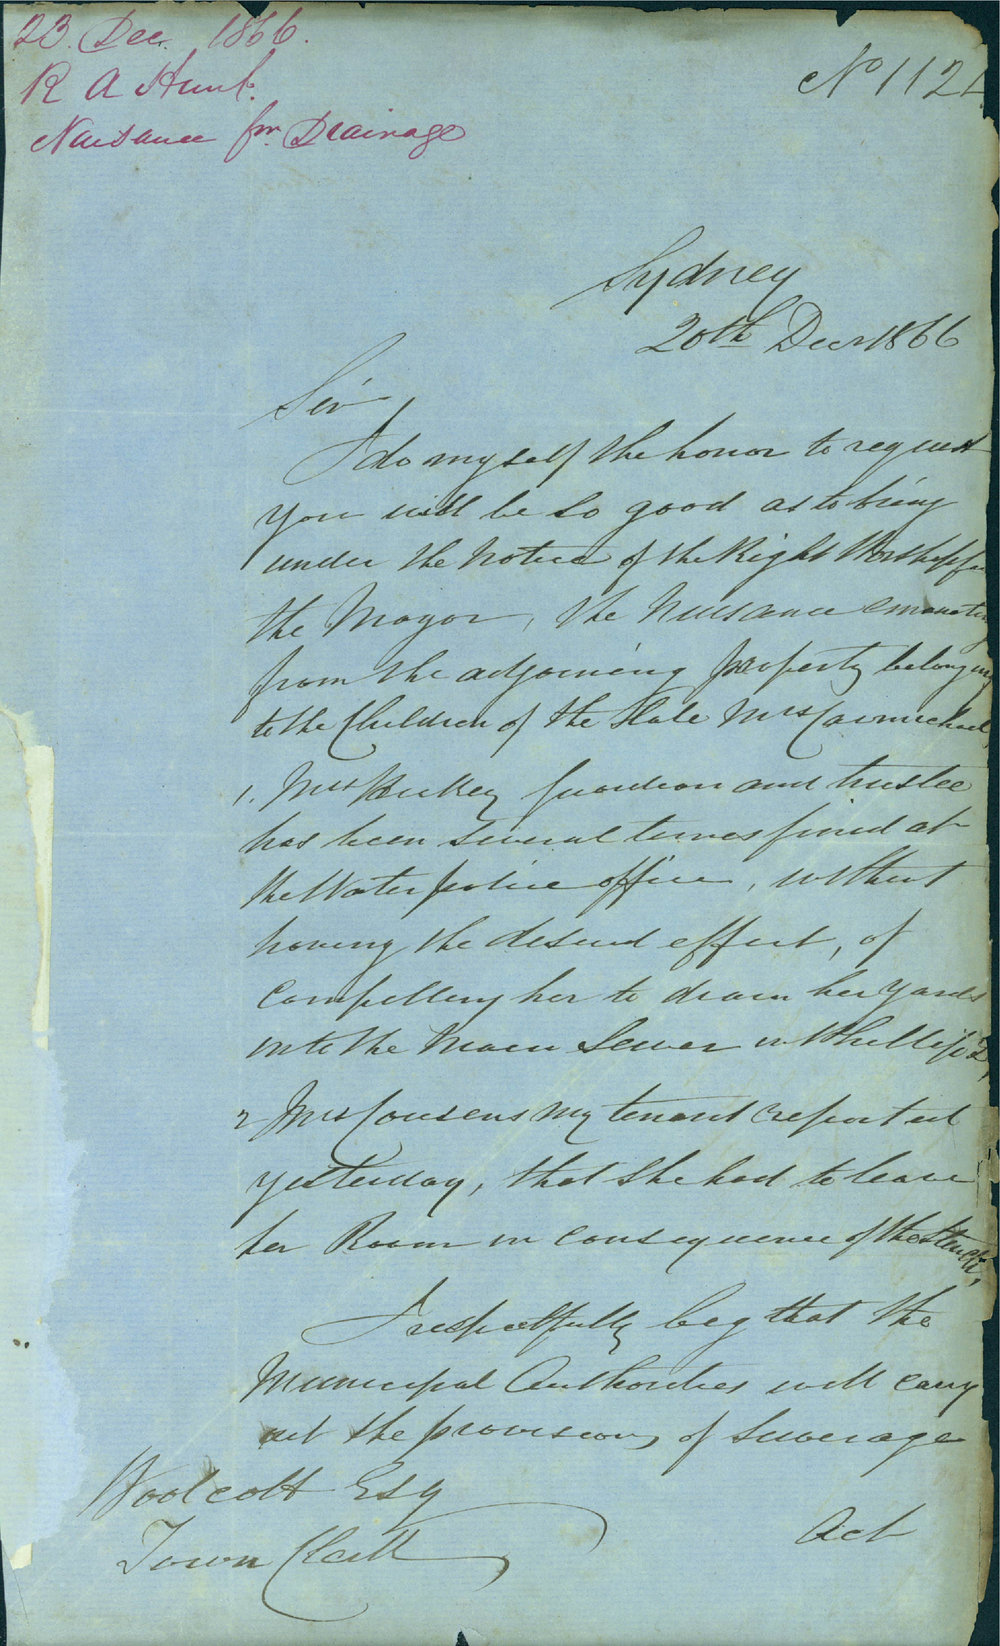 23. Dec. 1866.
R A Hunt.
Nuisance fm. Drainage
No 112
Sydney
20th Decr 1866
Sir
I do myself the honor to request
you will be so good as to bring
under the notice of the Right Worshipful
the Mayor, the Nuisance emanating
from the adjoining property belonging
to the Children of the late Mrs Carmichael,
1. Mrs Hickey Guardian and trustee
has been several times fined at
the Water police office, without
having the desired effect, of
compelling her to drain her yards
into the Main Sewer in Phillip St,
2 Mrs Cousens my tenant reported
yesterday, that she had to leave
her Room in consequence of the stench,
I respectfully beg that the
Municipal Authorities will carry
out the provisions of Sewerage
Woolcott Esq
Town Clerk
Act